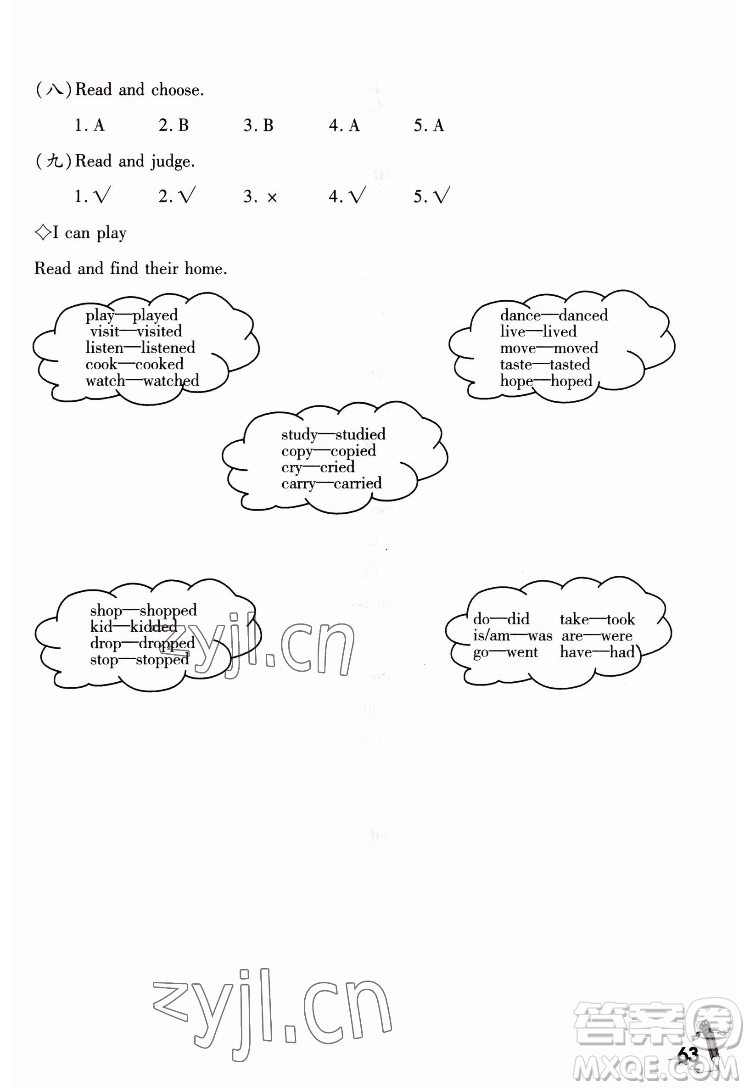 (八)Read and choose.
1. A 2. B 3. B 4. A 5. A
(九)Read and judge.
1. √ 2. √ 3. × 4. √ 5. √
◇I can play
Read and find their home.
play—played
visit—visited
listen—listened
cook—cooked
watch—watched
dance—danced
live—lived
move—moved
taste—tasted
hope—hoped
study—studied
copy—copied
cry—cried
carry—carried
shop—shopped
kid—kidded
drop—dropped
stop—stopped
do—did take—took
is/am—was are—were
go—went have—had
zyjl.cn
zyjl.cn
答案圈
MXQE.COM
63